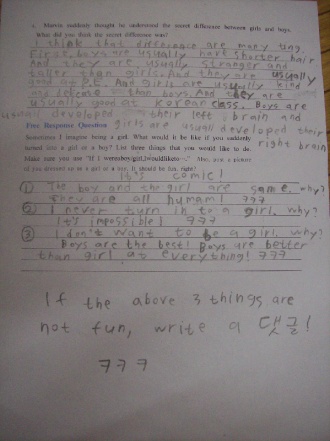 5. Marvin suddenly thought he understood the secret difference between girls and boys.
What did you think the secret difference was?
I think that difference are many ting.
First, boys are usually have shorter hair
And they are usually stronger and
taller than girls. And they are usually
good at P.E. And girls are usually kind
and than boys. And they are
usually good at korean class. Boys are
usuall devoloped their left brain and
girls are usuall developed their
right brain
Free Response Question
Sometimes I imagine being a girl. What would it be like if you suddenly
turned into a girl or a boy? List three things that you would like to do.
Make sure you use "If I were a boy/girl, I would like to~." Also, put a picture
of you dressed up as a girl or a boy. It should be fun, right?
It's comic!
① The boy and the girl are same. why?
They are all human! ㅋㅋㅋ
② I never turn in to a girl. why?
It's impossible! ㅋㅋㅋ
③ I don't want to be a girl. why?
Boys are the best! Boys are better
than girl at everything! ㅋㅋㅋ
If the above 3 things are
not fun, write a 댓글!
ㅋㅋㅋ